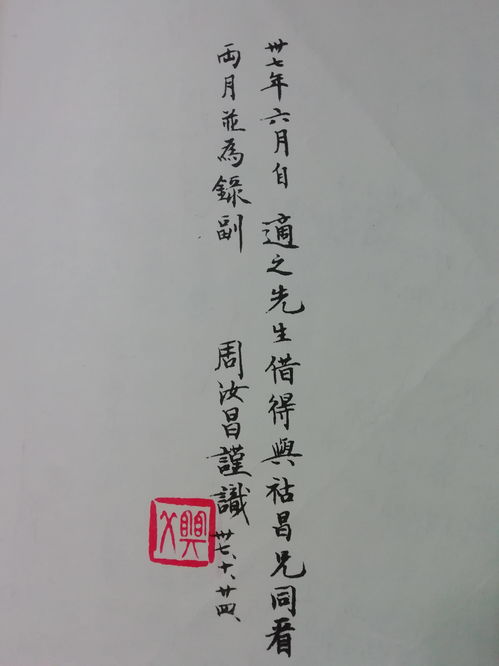 卅七年六月自　適之先生借得與祜昌兄同看
兩月並為錄副　周汝昌謹識　卅七、十、廿四、